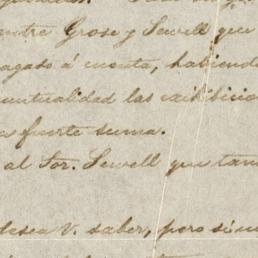 entre Grose y Sewell que
pagado á cuenta, habiendo
puntualidad las exhibicio
a fuerte suma.
al Sor. Sewell que tam
desea V. saber, pero si no